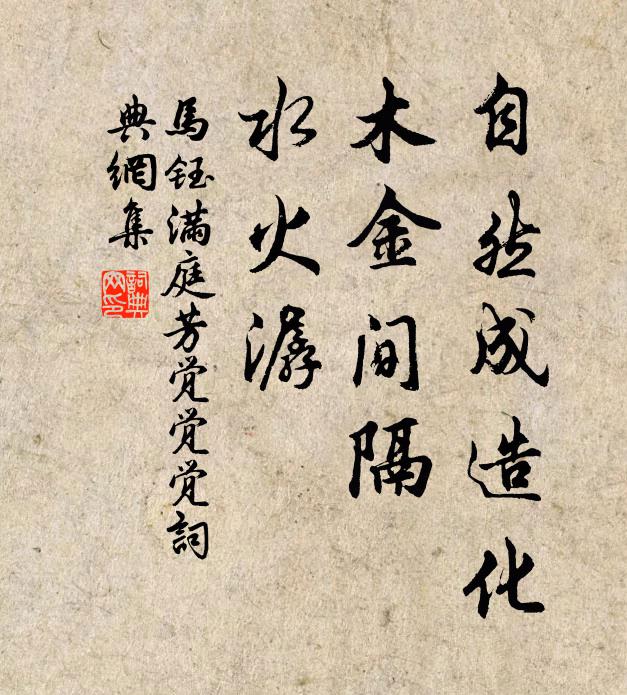 自然成造化
木金间隔
水火潺
馬鈺滿庭芳觉觉觉詞
典網集
詞典网印